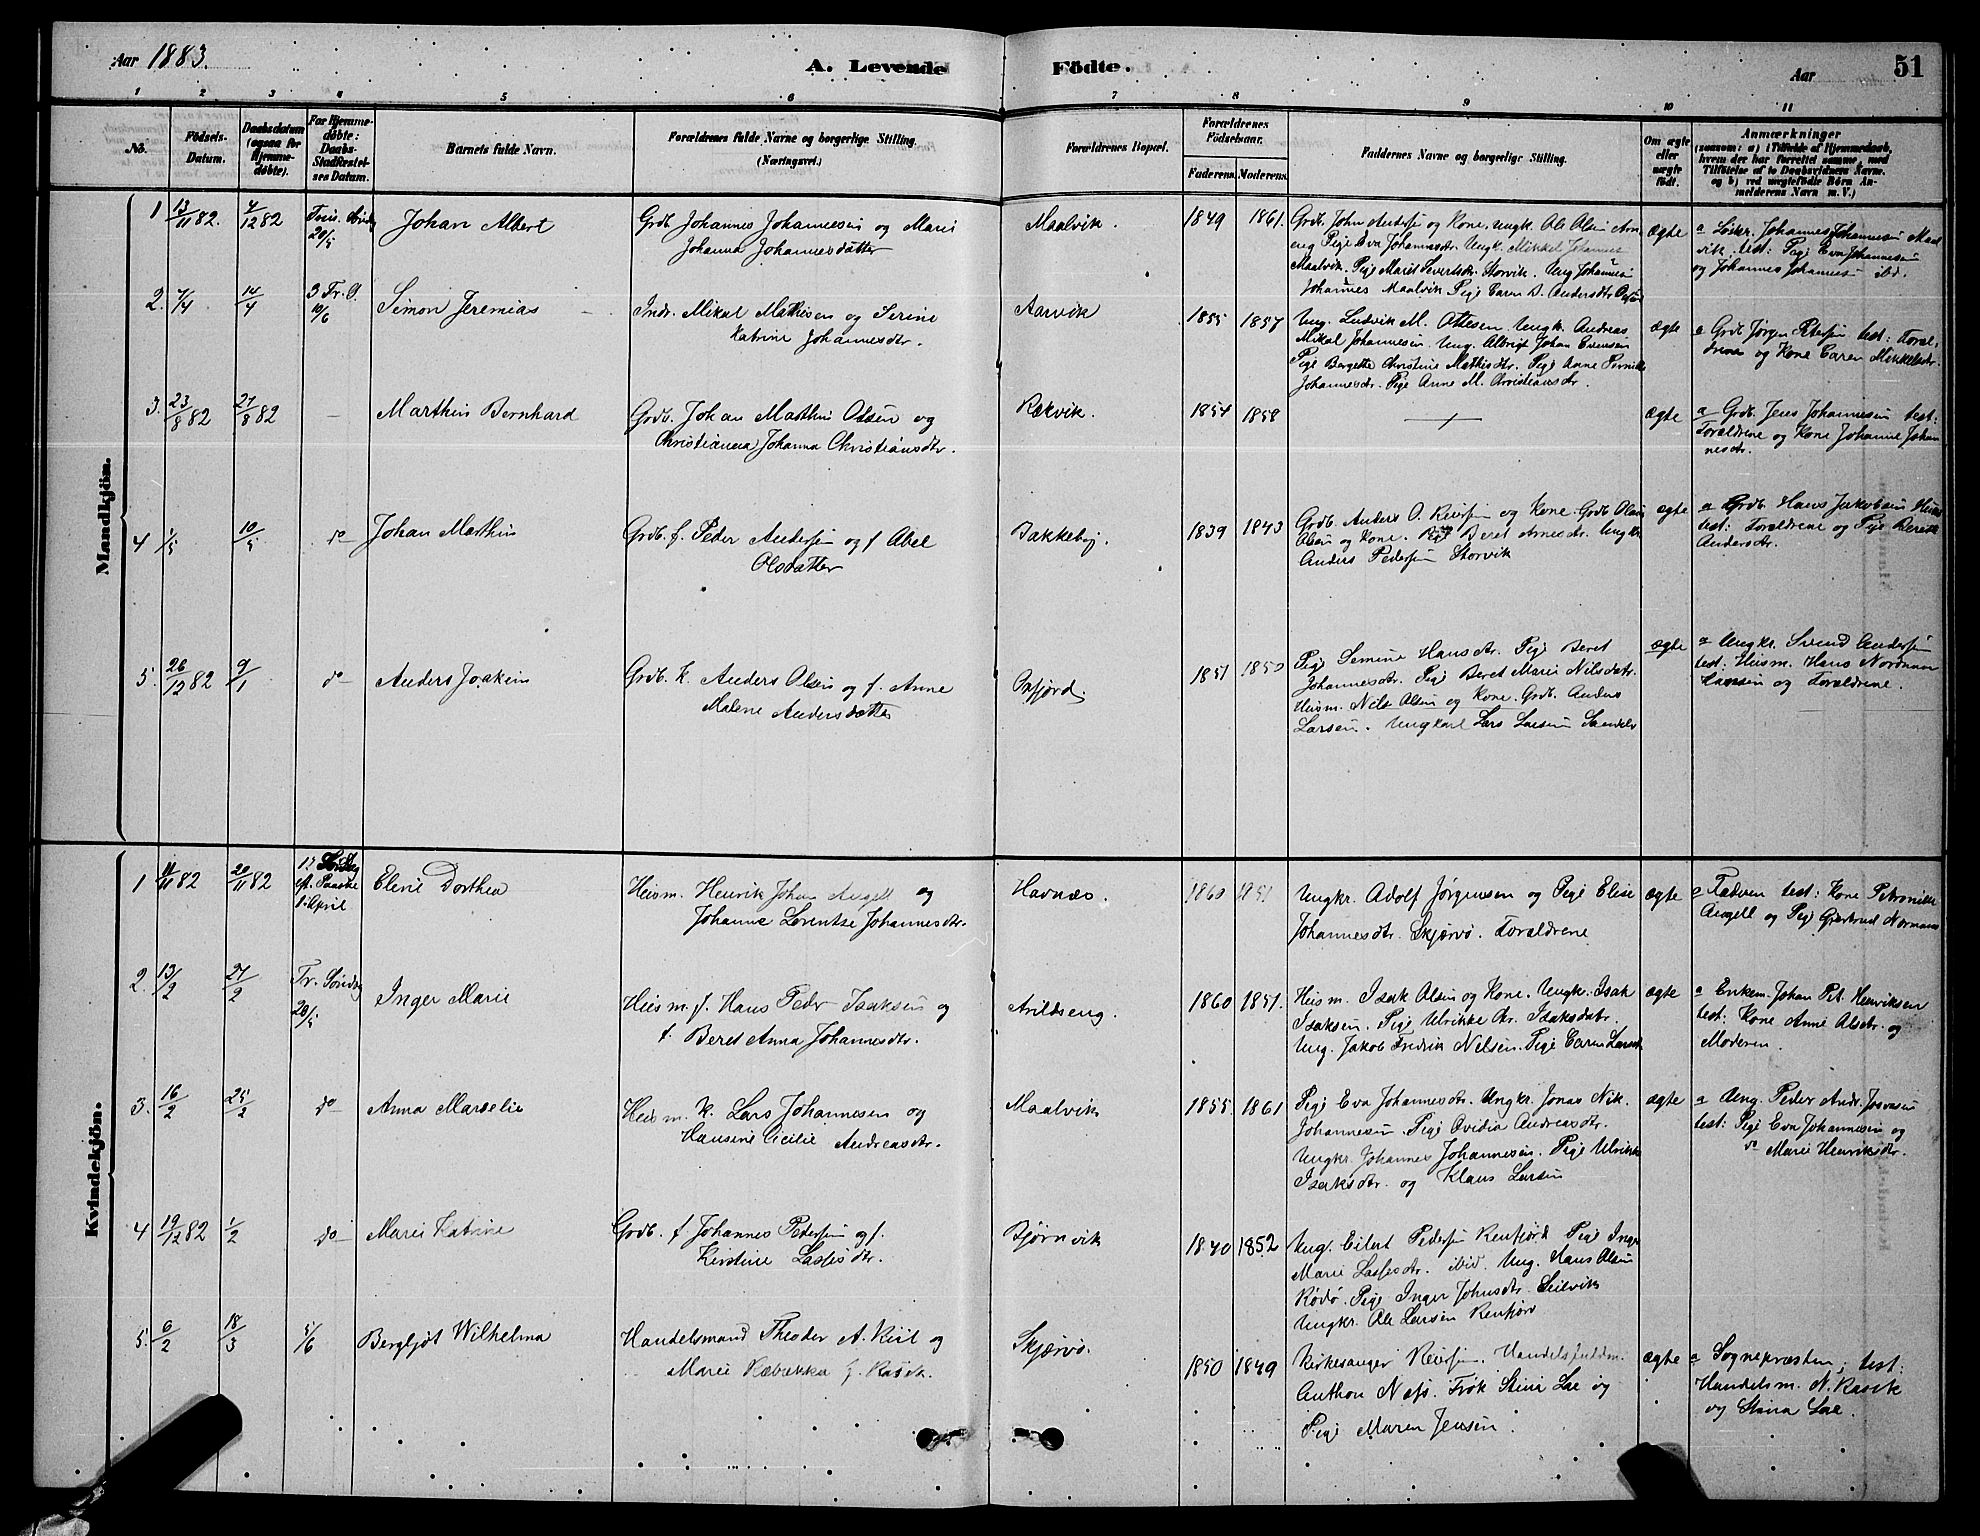 Aar 1883.
A. Levende Födte.
Aar
51
1 2 3 4 5 6 7 8 9 10 11
No.
Födsels-Datum.
Daabsdatum (ogsaa for Hjemme-døbte).
For Hjemme-døbte: Daabs-Stadfæstel-ses Datum.
Barnets fulde Navn.
Forældrenes fulde Navne og borgerlige Stilling. (Næringsvei.)
Forældrenes Bopæl.
Forældrenes Födselsaar.
Faderens. Moderens.
Faddernes Navne og borgerlige Stilling.
Om ægte eller uægte født.
Anmærkninger
(saasom: a) i Tilfælde af Hjemmedaab, hvem der har forrettet samme, med Tilføielse af to Daabsvidners Navne, og b) ved uægtefødte Børn An-melderens Navn m. V.)
Mandkjön.
1 13/11 82. 4/12 82 20/5 Johan Albert
Grdb. Johannes Johannesen og Marie
Johanna Johannesdatter
Maalvik. 1849 1861.
Grdb. John Andersen og Kone, Ungk. Ole Olsen
Pige Eva Johannesdr. Ungk. Mikkel Johannes
Maalvik. Pige Marit Sivertsdr. Storvik. Ung Johannes
Johannes Maalvik. Pige Caren B. Andersdtr
ægte
a Johannes Johannesen Maal
vik. test: Pige Eva Johannesen
og Johannes Johannes ibd.
2. 7/4 14/4 3 Tr. S. 10/6 Simon Jeremias
Indr. Mikal Mathisen og Serine
Katrine Johannesdtr.
Aarvik 1855 1857
Ung. Ludvik M. Ottesen. Ungk. Andreas
Mikal Johannesen. Ung. Albrigt Johan Evensen
Pige Bergette Christine Mathisdtr. Pige Anne Pernille
Johannesdtr. Pige Anne M. Christiansdr.
ægte
a Grdb Jørgen Petersen test: Foræl-
drene og Kone Caren Mikkelsdr.
3. 23/8 82 27/8 82 – Marthin Bernhard
Grdb. Johan Marthin Olsen og
Christianna Johanna Christiansdtr.
Rækvik. 1854 1858
ægte
a Grdb. Jens Johannesen test:
Forældrene og Kone Johanne Johan
nesdr.
4 1/5 10/5 do Johan Marthin
Grdb. f. Peder Andersen og f Abel
Olsdatter
Bakkeby. 1839 1843
Grdb. Anders O. Reiersen og Kone. Grdb Olaus
Olsen og Kone. Pige Beret Arnesdr. Ungkr
Anders Pedersen Storvik
ægte
a Grdb Hans Jakobsen
test: Forældrene og Pige Berethe
Andersdr.
5. 26/12 82 9/1 do Anders Joakim
Grdb. K. Anders Olsen og f. Anne
Malene Andersdatter
Oxfjord. 1851 1850
Pige Semine Hansdr. Pige Beret
Johannesdtr. Pige Beret Marie Nilsdatr.
Husm. Nils Olsen og Kone. Grdb. Anders
Larsen. Ungkarl Lars Larsen
ægte
a Ungkr. Svend Andersen
test: Husm. Hans Nordman
Hansen og Forældrene.
Kvindekjön.
1 11/11 82 20/11 82 eft. Paaske 1 April Elene Dorthea
Husm. Henrik Johan Angell og
Johanne Lorentse Johannesdtr.
Havnæs. 1860 1851
Ungkr. Adolf Jørgensen og Pige Elise
Johannesdtr. Skjærvø. Forældrene
ægte
a Faderen test: Kone Petronille
Angell og Pige Gjertrud Normann
2. 13/2 27/2 Tr. Søndag 20/5 Inger Marie
Husm. f. Hans Peder Isaksen og
f. Beret Anna Johannesdtr.
Arildseng. 1860 1851.
Husm. Isak Olsen og Kone. Ungk. Isak
Isaksen. Pige Ulrikke Isaksdatr.
Ung. Jakob Fredrik Nilsen. Pige Caren Larsdr
ægte
a Enkem. Johan Pet. Henriksen
test: Kone Anne Olsdtr. og
Moderen.
3. 16/2 25/2 do Anna Marselie
Husm. K. Lars Johannesen og
Hansine Cicilie Andreasdtr.
Maalvik 1855. 1861
Pige Eva Johannesdtr. Ungkr. Jonas Nik.
Johannesen. Pige Ovidia Andreasdtr.
Ungkr. Johannes Johannesen. Pige Ulrikke
Isaksdtr. og Klaus Larsen
ægte
a Ung. Peder Andr. Josvasen
test: Pige Eva Johannesen og
do Marie Henriksdtr.
4 19/12 82 1/2 do Marie Katrine
Grdb. f Johannes Pedersen og f.
Kirstine Lassesdtr.
Bjørnvik 1840 1852
Ung. Eilert Pedersen Reinfjord Pige Inger
Marie Lassesdtr. ibid. Ung. Hans Olsen
Rødø. Pige Inger Johnsdtr. Seilvik
Ungkr. Ole Larsen Reinfjord
5. 6/2 18/3 5/6 Bergljot Wilhelma
Handelsmand Theodor A. Kiil og
Marie Rebekka f. Rasch.
Skjærvø. 1850 1849
Kirkesanger Reiersen. Handelsfuldm.
Anthon Næss. Frøk Stina Lae og
Pige Maren Jensen.
ægte
a Sognepræsten; test:
Handelsm. N. Rasch
og Stina Lae.